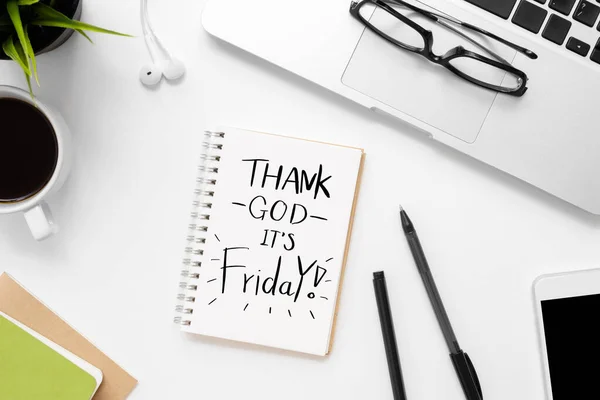 THANK
-GOD-
IT'S
Friday!